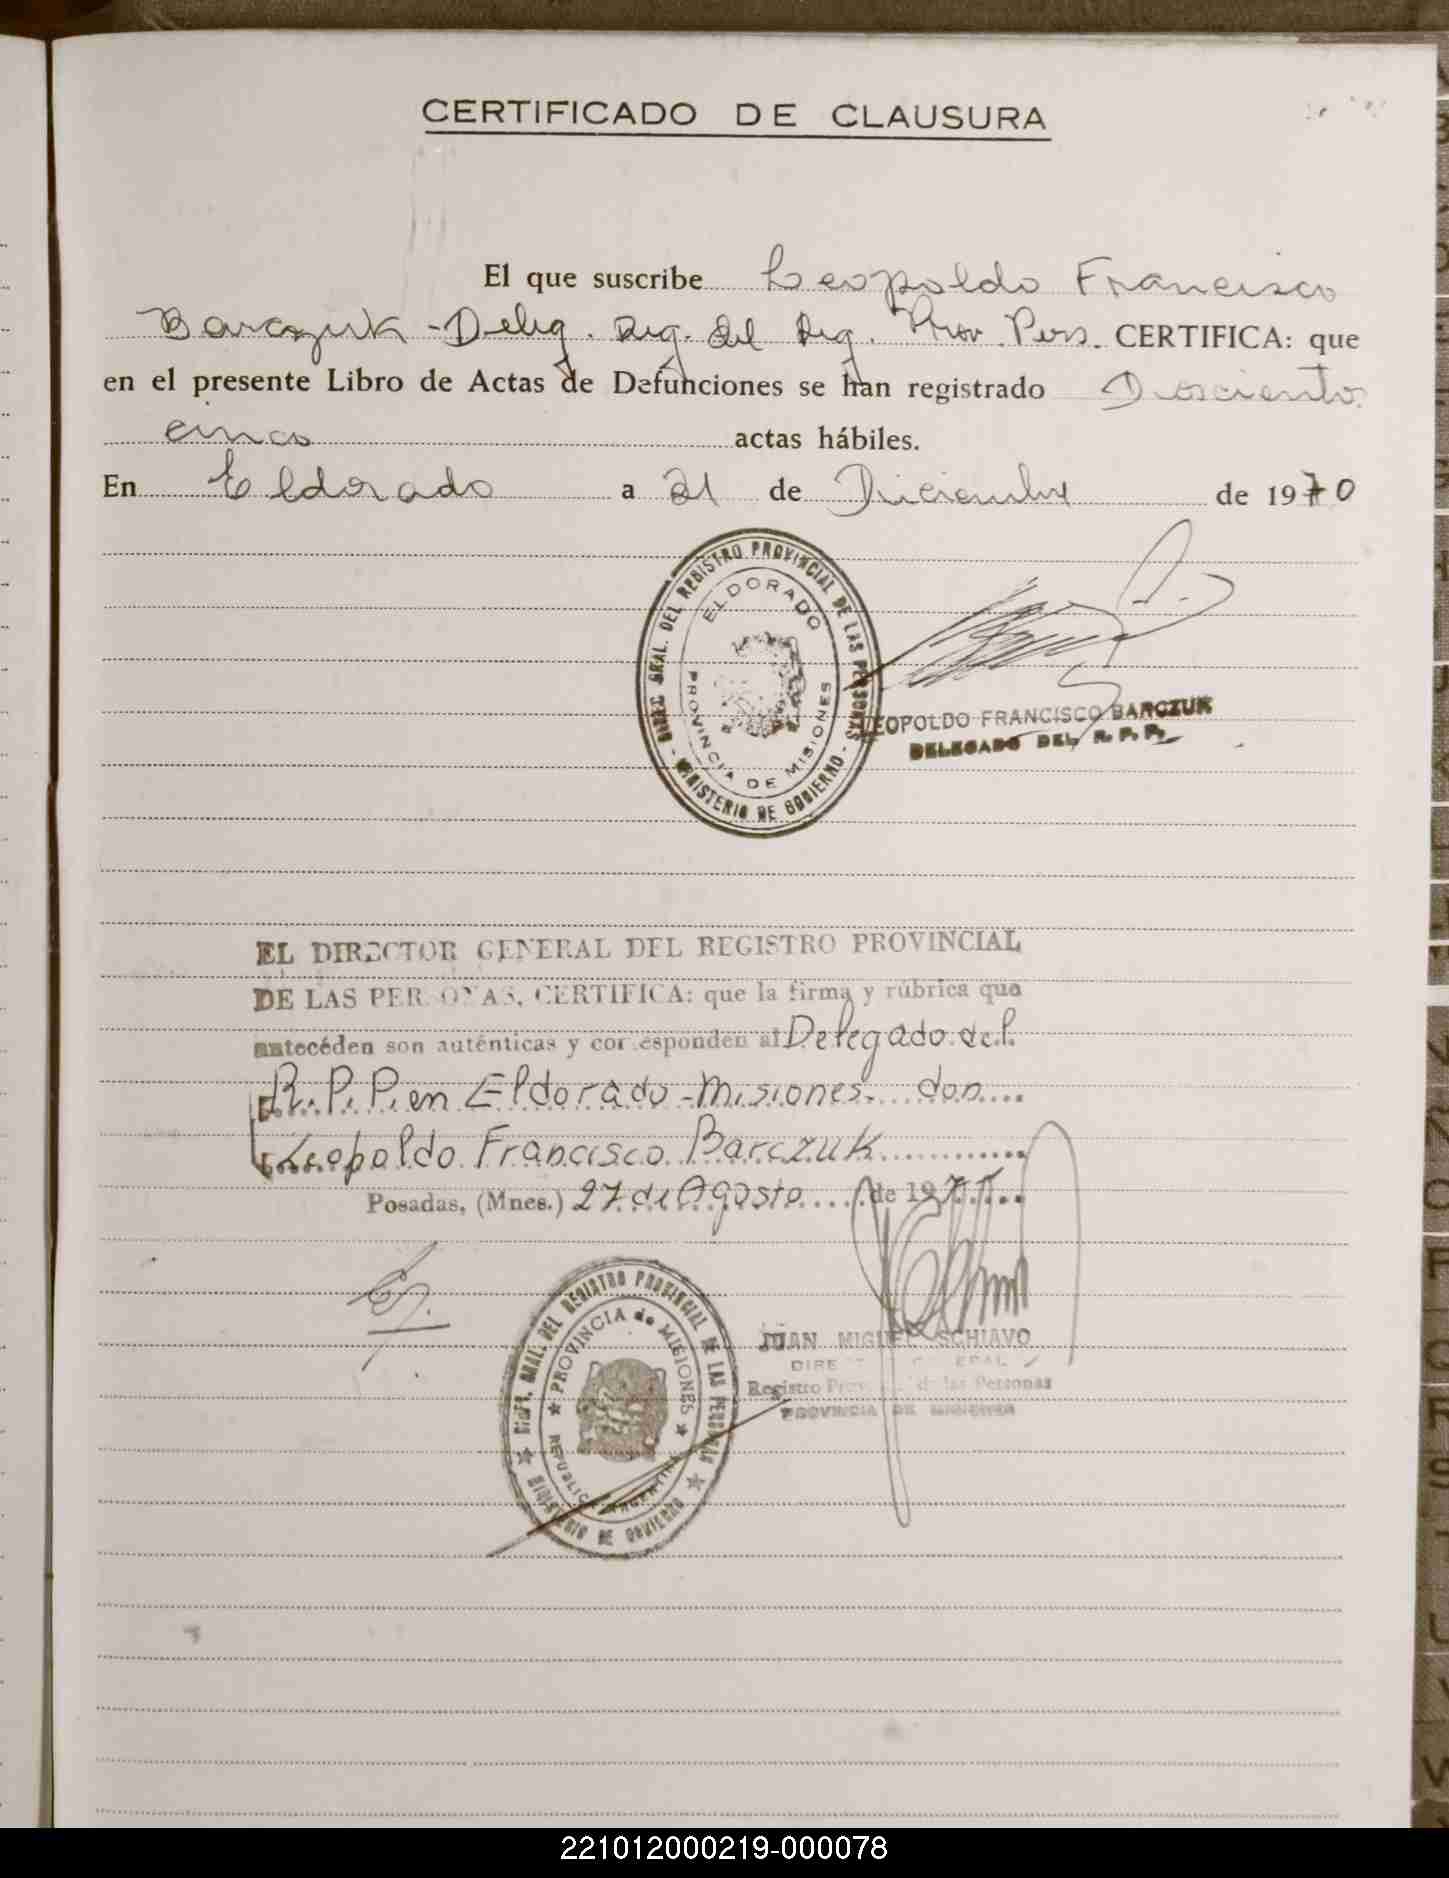 CERTIFICADO DE CLAUSURA
El que suscribe Leopoldo Francisco
Barczuk - Deleg. Reg. del Reg. Prov. Pers. CERTIFICA: que
en el presente Libro de Actas de Defunciones se han registrado Doscientos
cinco actas hábiles.
En Eldorado a 21 de Diciembre de 1970
DIREC. GRAL. DEL REGISTRO PROVINCIAL DE LAS PERSONAS
- MINISTERIO DE GOBIERNO -
ELDORADO
PROVINCIA DE MISIONES
LEOPOLDO FRANCISCO BARCZUK
DELEGADO DEL R. P. P.
EL DIRECTOR GENERAL DEL REGISTRO PROVINCIAL
DE LAS PERSONAS, CERTIFICA: que la firma y rúbrica que
antecéden son auténticas y corresponden al Delegado del
R. P. P. en Eldorado - Misiones. don
Leopoldo Francisco Barczuk
Posadas, (Mnes.) 27 de Agosto de 197
DIREC. GRAL. DEL REGISTRO PROVINCIAL DE LAS PERSONAS
MINISTERIO DE GOBIERNO
PROVINCIA de MISIONES
REPUBLICA ARGENTINA
JUAN MIGUEL SCHIAVO
DIRECTOR GENERAL
Registro Provincial de las Personas
PROVINCIA DE MISIONES
221012000219-000078